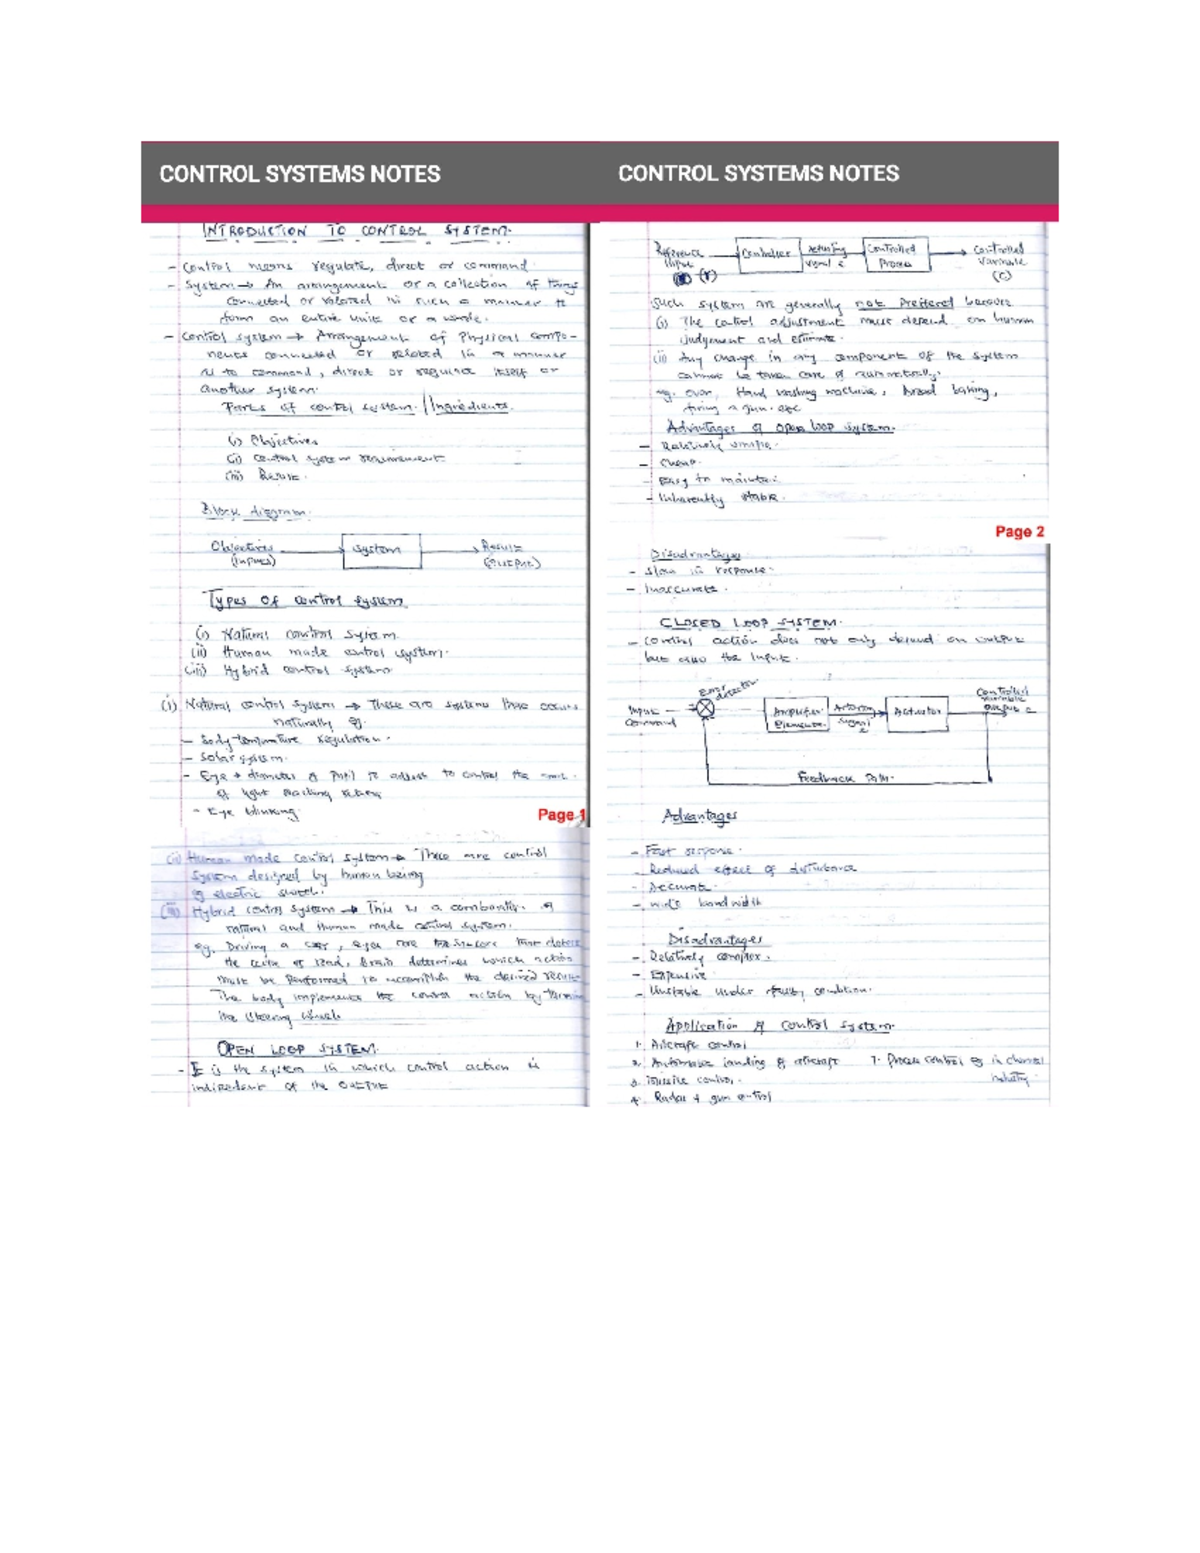 CONTROL SYSTEMS NOTES
INTRODUCTION TO CONTROL SYSTEM.
- Control means regulate, direct or command
- System → An arrangement or a collection of things
connected or related in such a manner to
form an entire unit or a whole.
- Control system → Arrangement of Physical compo-
nents connected or related in a manner
as to command, direct or regulate itself or
another system.
Parts of control system / Ingredients.
(i) Objectives
(ii) Control system requirement
(iii) Result.
Block diagram.
Objectives (Inputs)
System
Result (Output)
Types of control system
(i) Natural control system
(ii) Human made control system.
(iii) Hybrid control system
(i) Natural control system → These are systems that occurs
naturally eg.
- Body temperature regulation.
- Solar system.
- Eye → diameter of Pupil to adjust to control the
of light reaching retina
- Eye blinking.
Page 1
(ii) Human made control system → These are control
system designed by human being
eg electric switch.
(iii) Hybrid control system → This is a of
natural and Human made control system.
eg. Driving a car, eyes are the sensors that detect
the of road, Brain determines which action
must be performed to accomplish the desired result
The body implements the control action by turning
the steering wheel
OPEN LOOP SYSTEM.
- It is the system in which control action is
independent of the output
CONTROL SYSTEMS NOTES
Reference Input (r)
Controller
Actuating signal e
Controlled Process
Controlled Variable (C)
Such system are generally not Preferred because
(i) The control adjustment must depend on human
judgement and estimate.
(ii) Any change in any component of the system
cannot be taken care of automatically.
eg. oven, Hand washing machine, bread baking,
firing a gun. etc
Advantages of open loop system.
- Relatively simple.
- Cheap.
- Easy to maintain.
- Inherently stable.
Page 2
Disadvantages
- Slow in response.
- Inaccurate.
CLOSED LOOP SYSTEM.
- Control action does not only depend on output
but also the Input.
Error detector
Input Command
Amplifier Elements
Signal
Actuator
Controlled variable output c
Feedback Path.
Advantages
- Fast response.
- Reduced effect of disturbance
- Accurate.
- wide bandwidth
Disadvantages
- Relatively complex.
- Expensive
- Unstable under faulty condition.
Application of control system.
1. Aircraft control
2. Automatic landing of aircraft
7. Process control eg in chemical industry.
3. Missile control.
4. Radar & gun control